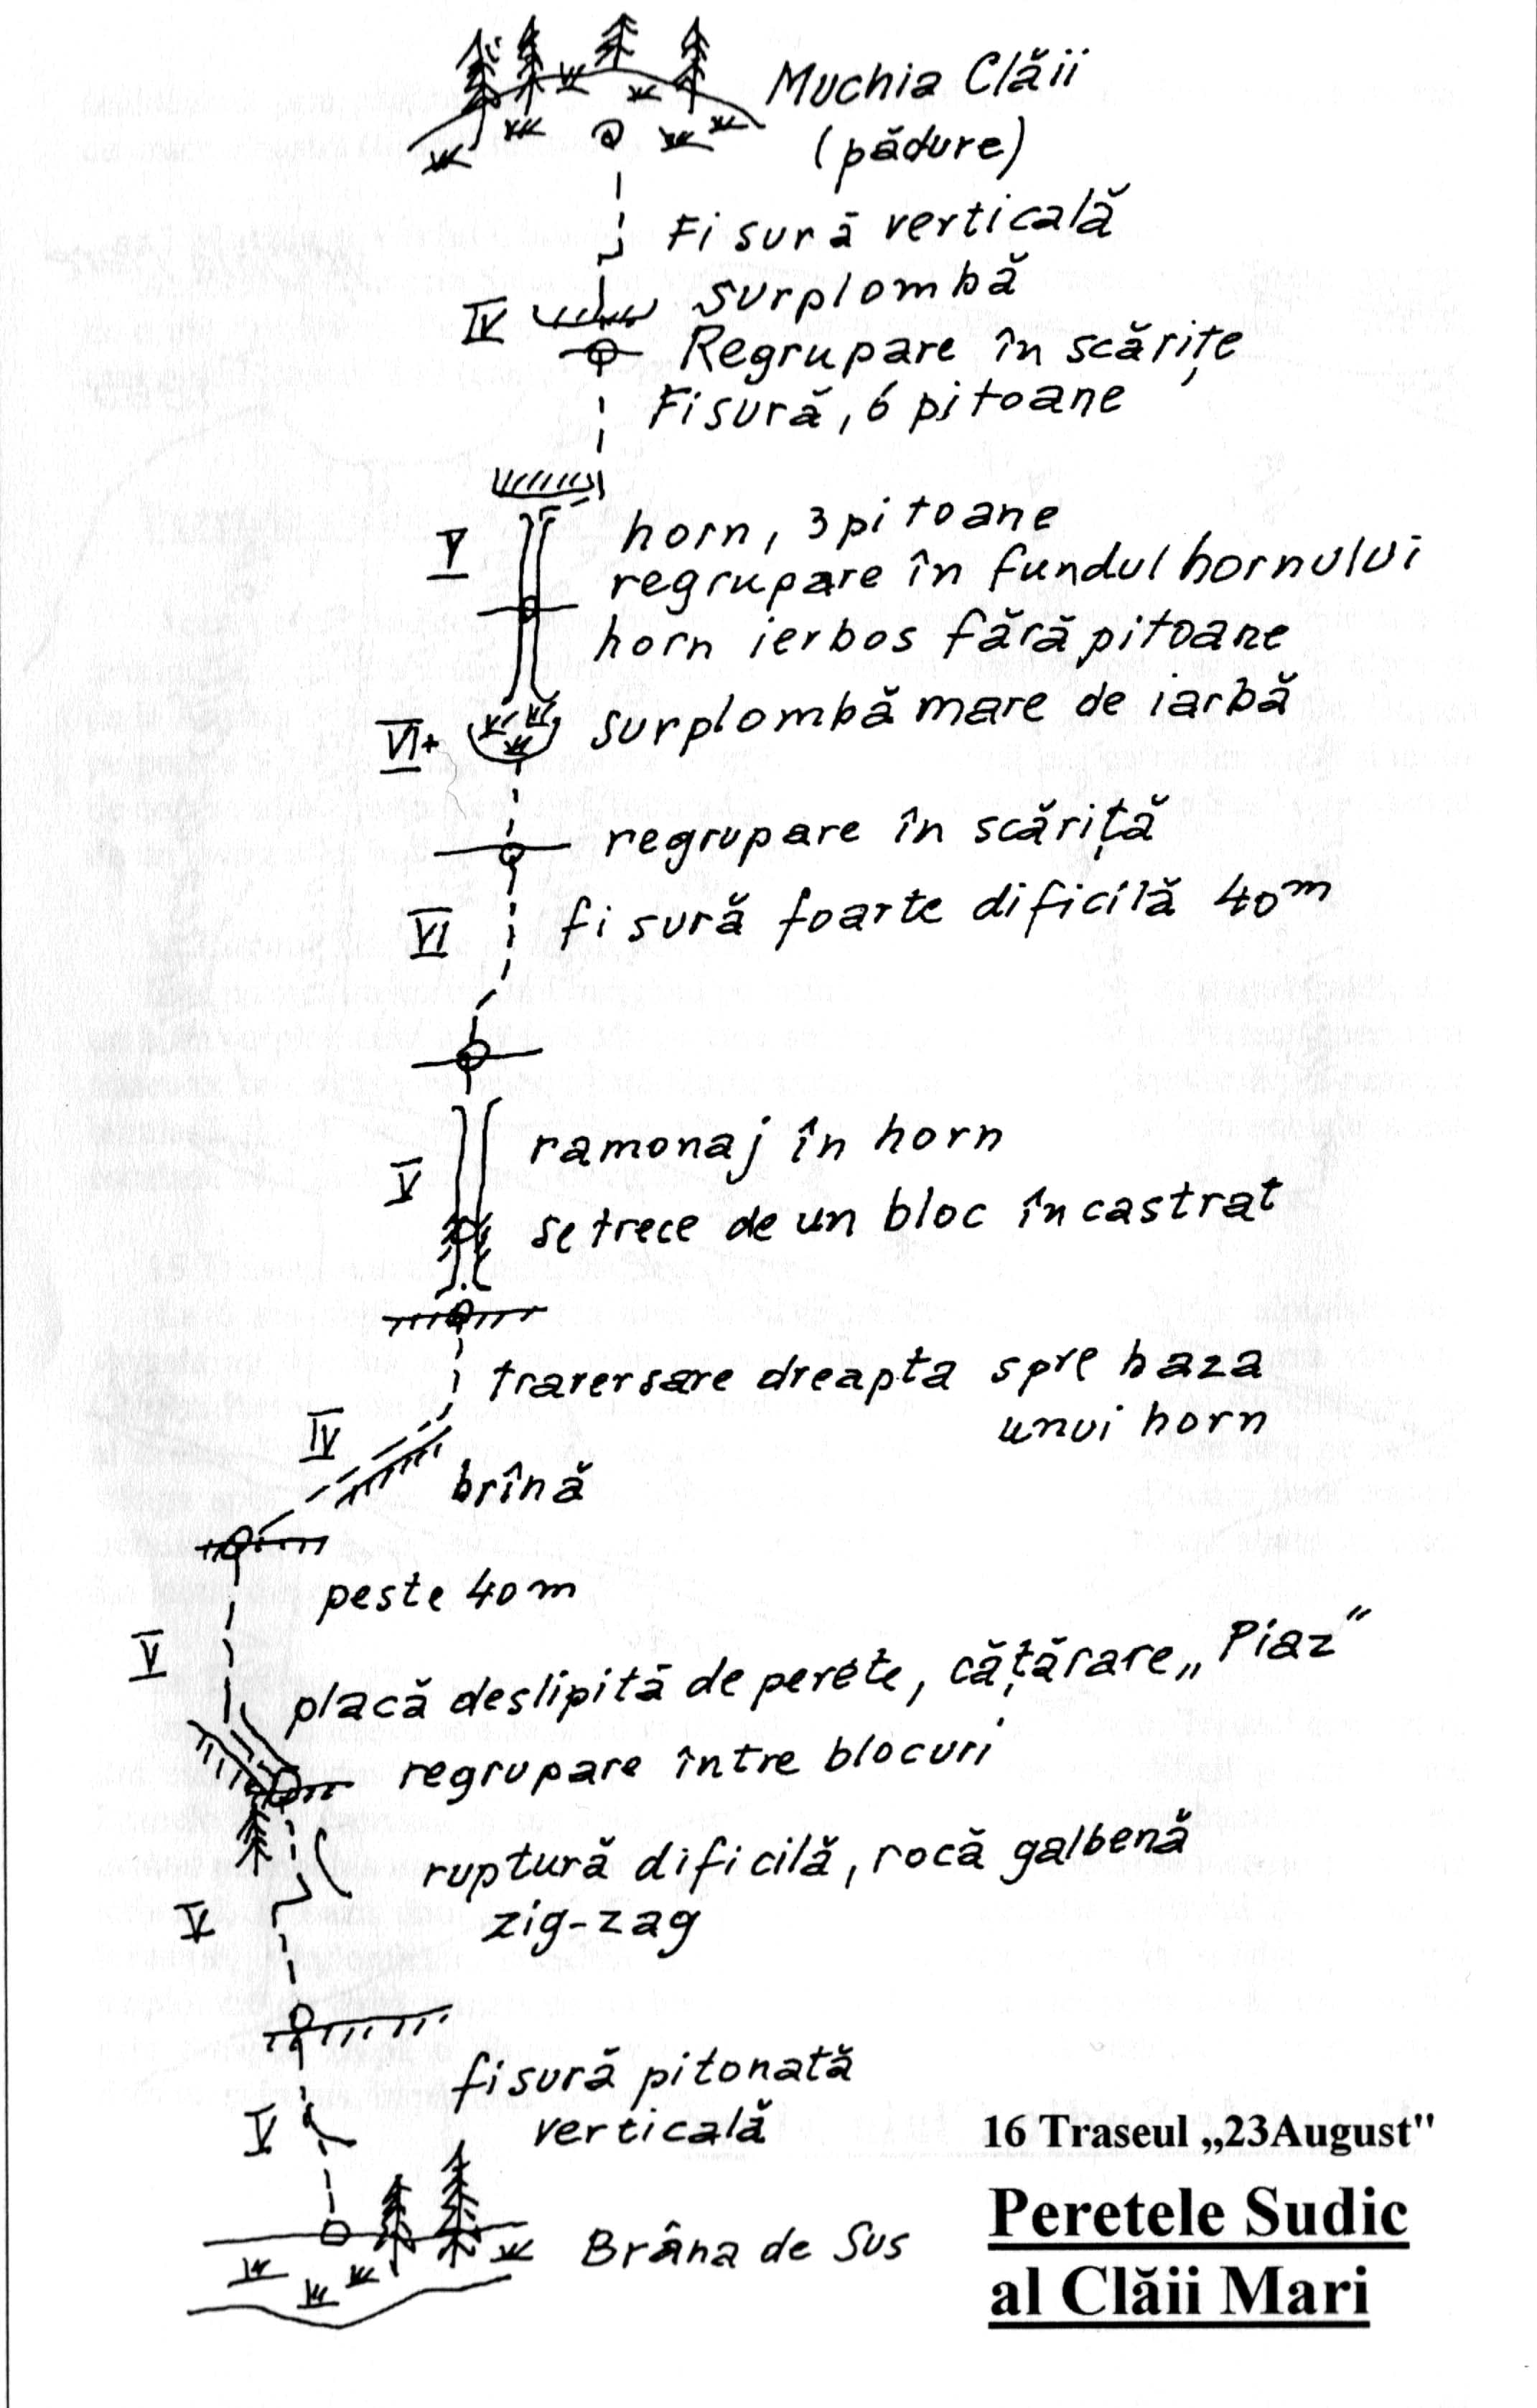 Muchia Clăii
(pădure)
Fisură verticală
surplombă
IV
Regrupare în scărițe
Fisură, 6 pitoane
horn, 3 pitoane
V
regrupare în fundul hornului
horn ierbos fără pitoane
surplombă mare de iarbă
VI+
regrupare în scăriță
fisură foarte dificilă 40m
VI
ramonaj în horn
V
se trece de un bloc încastrat
traversare dreapta spre baza
unui horn
IV
brînă
peste 40m
V
placă deslipită de perete, cățărare „Piaz"
regrupare între blocuri
ruptură dificilă, rocă galbenă
zig-zag
V
fisură pitonată
verticală
V
16 Traseul „23August"
Peretele Sudic
al Clăii Mari
Brâna de Sus